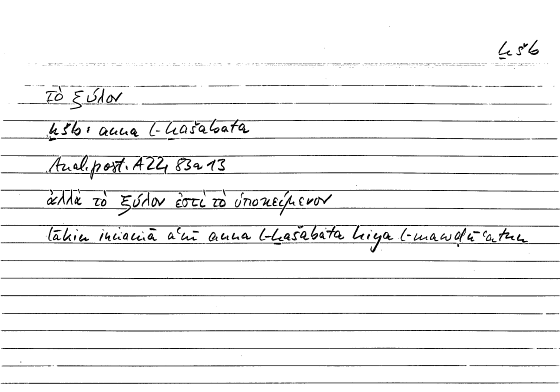 ḫšb
τὸ ξύλον
ḫšb: anna l-ḫašabata
Anal. post. A 22, 83a13
ἀλλὰ τὸ ξύλον ἐστὶ τὸ ὑποκείμενον
lākin innamā aʿnī anna l-ḫašabata hiya l-mawḍūʿatun